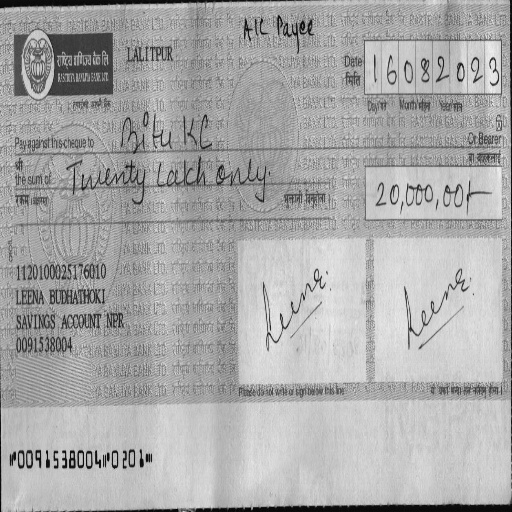 A/C Payee
राष्ट्रिय वाणिज्य बैंक लि
RASTRIYA BANIJYA BANK LTD.
LALITPUR
Date
मिति
16082023
Day गते Month महिना Year साल
Pay against this cheque to Bitu KC
Or Bearer
श्री
the sum of Twenty Lakh only.
रकम
20,000,00/-
1120100025176010
LEENA BUDHATHOKI
SAVINGS ACCOUNT NPR
0091538004
Leena.
Leena.
Please do not write or sign below this line
⑈0091538004⑈0201⑈